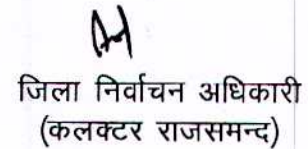 जिला निर्वाचन अधिकारी
(कलक्टर राजसमन्द)